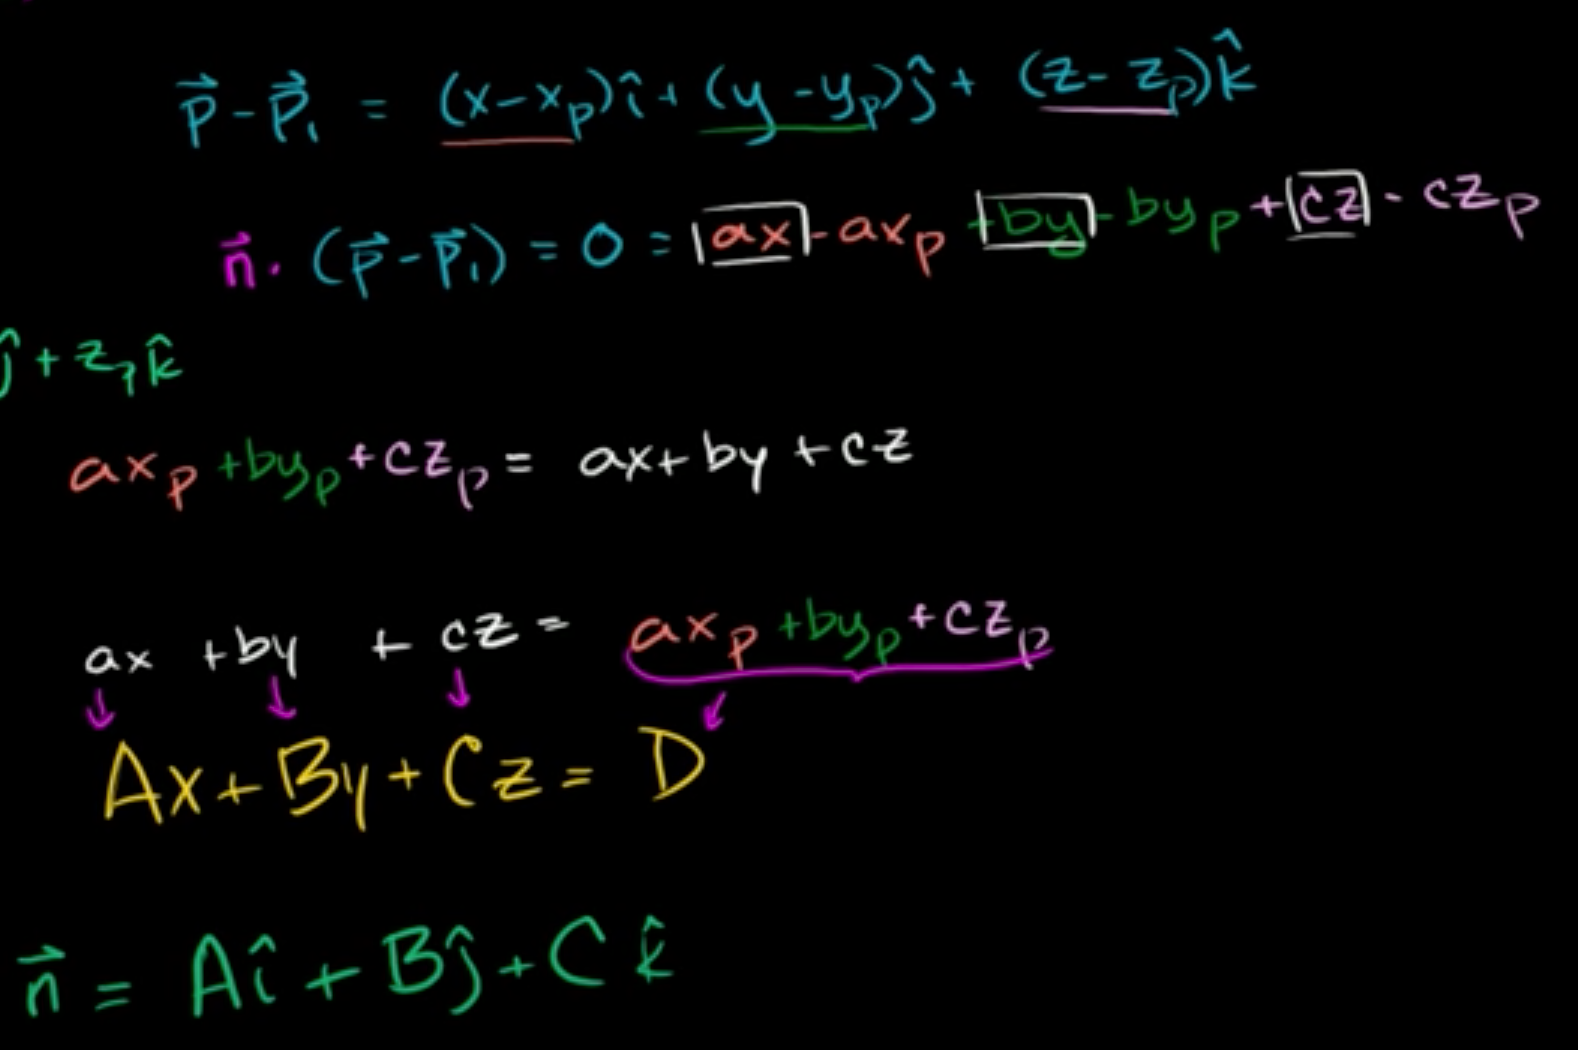 p⃗ - p⃗₁ = (x-xₚ)î + (y-yₚ)ĵ + (z-zₚ)k̂
n⃗ · (p⃗ - p⃗₁) = 0 = ax - axₚ + by - byₚ + cz - czₚ
ĵ + z₁k̂
axₚ + byₚ + czₚ = ax + by + cz
ax + by + cz = axₚ + byₚ + czₚ
Ax + By + Cz = D
n⃗ = Aî + Bĵ + Ck̂